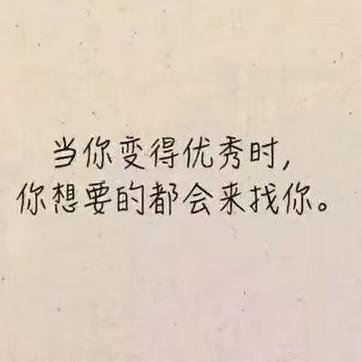 当你变得优秀时,
你想要的都会来找你。